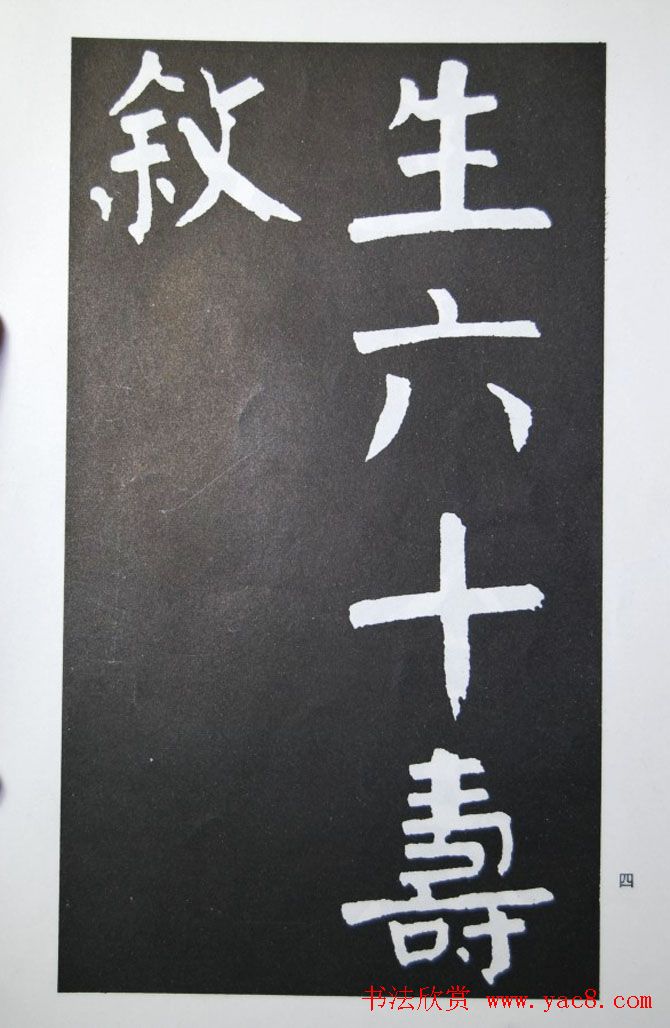 生六十壽
敘
四
书法欣赏 www.yac8.com